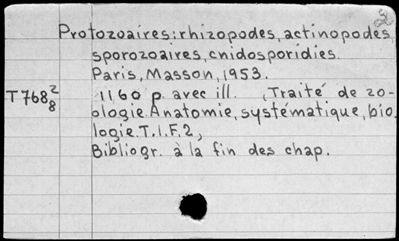 Protozoaires: rhizopodes, actinopodes,
sporozoaires, cnidosporidies.
Paris, Masson, 1953.
T768 2/8 1160 p. avec ill. (Traité de zo-
ologie. Anatomie, systématique, bio-
logie. T.I.F.2,
Bibliogr. à la fin des chap.